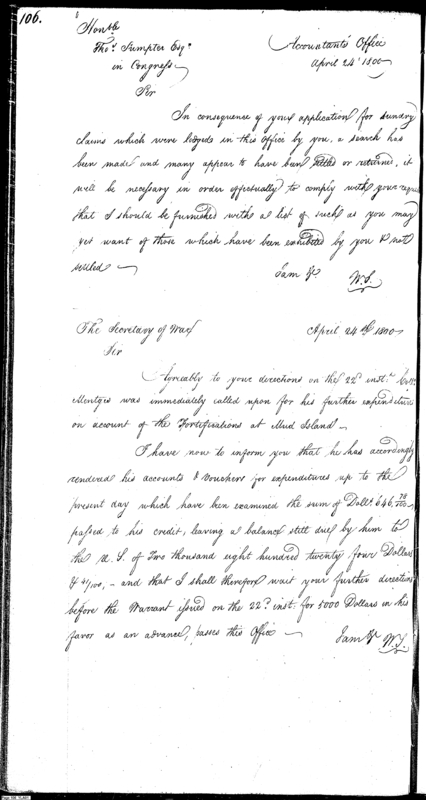 106.
Honble
Thos. Sumpter Esqr
in Congress
Accountants Office
April 24th 1800
Sir
In consequence of your application for sundry
claims which were lodged in this Office by you, a search has
been made and many appear to have been settled or returned, it
will be necessary in order effectually to comply with your request
that I should be furnished with a list of such as you may
yet want of those which have been exhibited by you & not
settled
I am &c. W. S.
The Secretary of War
April 24th 1800
Sir
Agreeably to your directions on the 22d inst.
Mentges was immediately called upon for his further expenditures
on account of the Fortifications at Mud Island
I have now to inform you that he has accordingly
rendered his accounts & Vouchers for expenditures up to the
present day which have been examined the sum of Dolls. 646.
passed to his credit, leaving a balance still due by him to
the U. S. of Two thousand eight hundred twenty four Dollars
& /100, - and that I shall therefore wait your further directions
before the Warrant issued on the 22d inst. for 5000 Dollars in his
favor as an advance, passes this Office
I am &c W. S.